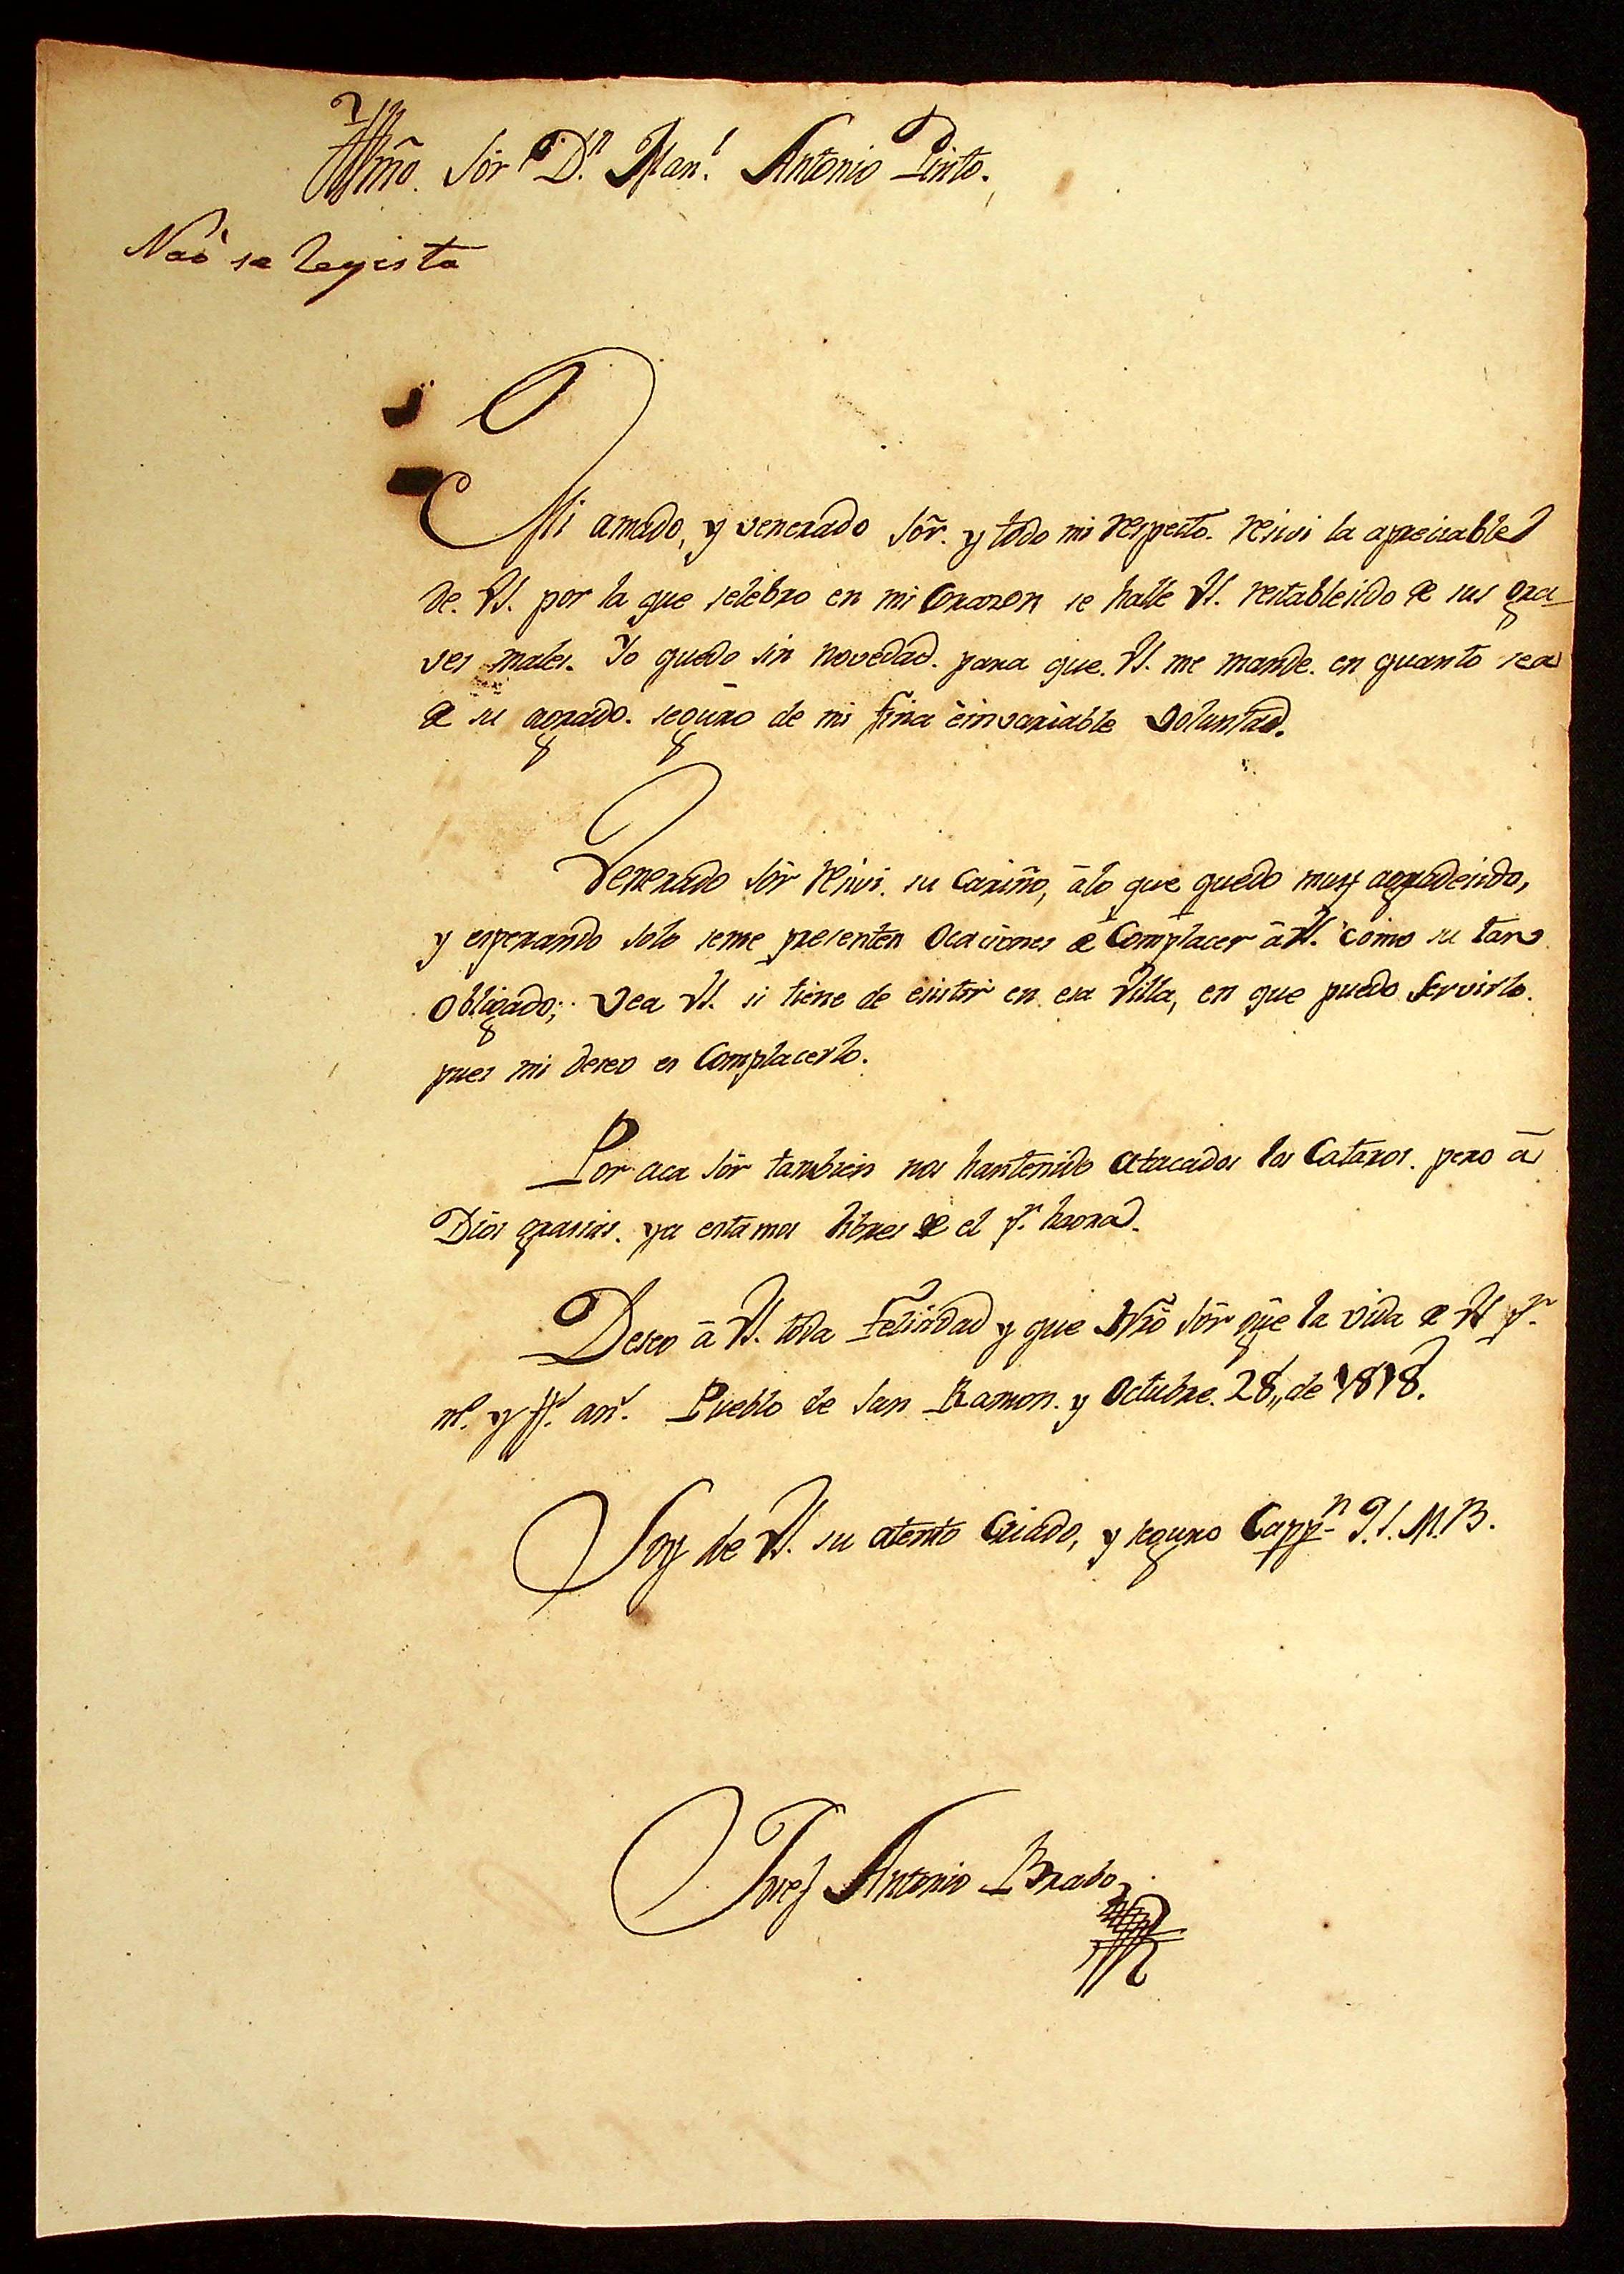 Yllmõ. Sõr Dn. Manl. Antonio Pinto.
Naõ se Regista
Mi amado, y venerado Sõr. y todo mi respecto. resivi la apreciable
de. VS. por la que selebro en mi Corazon se halle VS. restablesido de sus gra-
ves males. Yo quedo sin novedad. para que. VS. me mande. en quanto sea
de su agrado. seguro de mi fina ê invariable voluntad.
Venerado Sõr resivi. su Cariño, âlo que quedo muy agradesido,
y esperando solo seme presenten Ocaciones de Complacer â VS. como su tan
obligado; vea VS. si tiene de existir en esa Villa, en que puedo Servirlo.
pues mi deseo es Complacerlo.
Por aca Sõr tambien nos hantenido atacados los Cataros. pero â
Dios grasias. ya estamos libres de el pr. haora.
Deseo â VS. toda Felisidad y que Nrõ Sõr gũe la vida de VS pr.
ms. y ffs. ans. Pueblo de San Ramon. y Octubre. 28,, de 1818.
Soy de VS. su atento Criado, y seguro Cappn. Q.S.M.B.
Josef Antonio Brabo